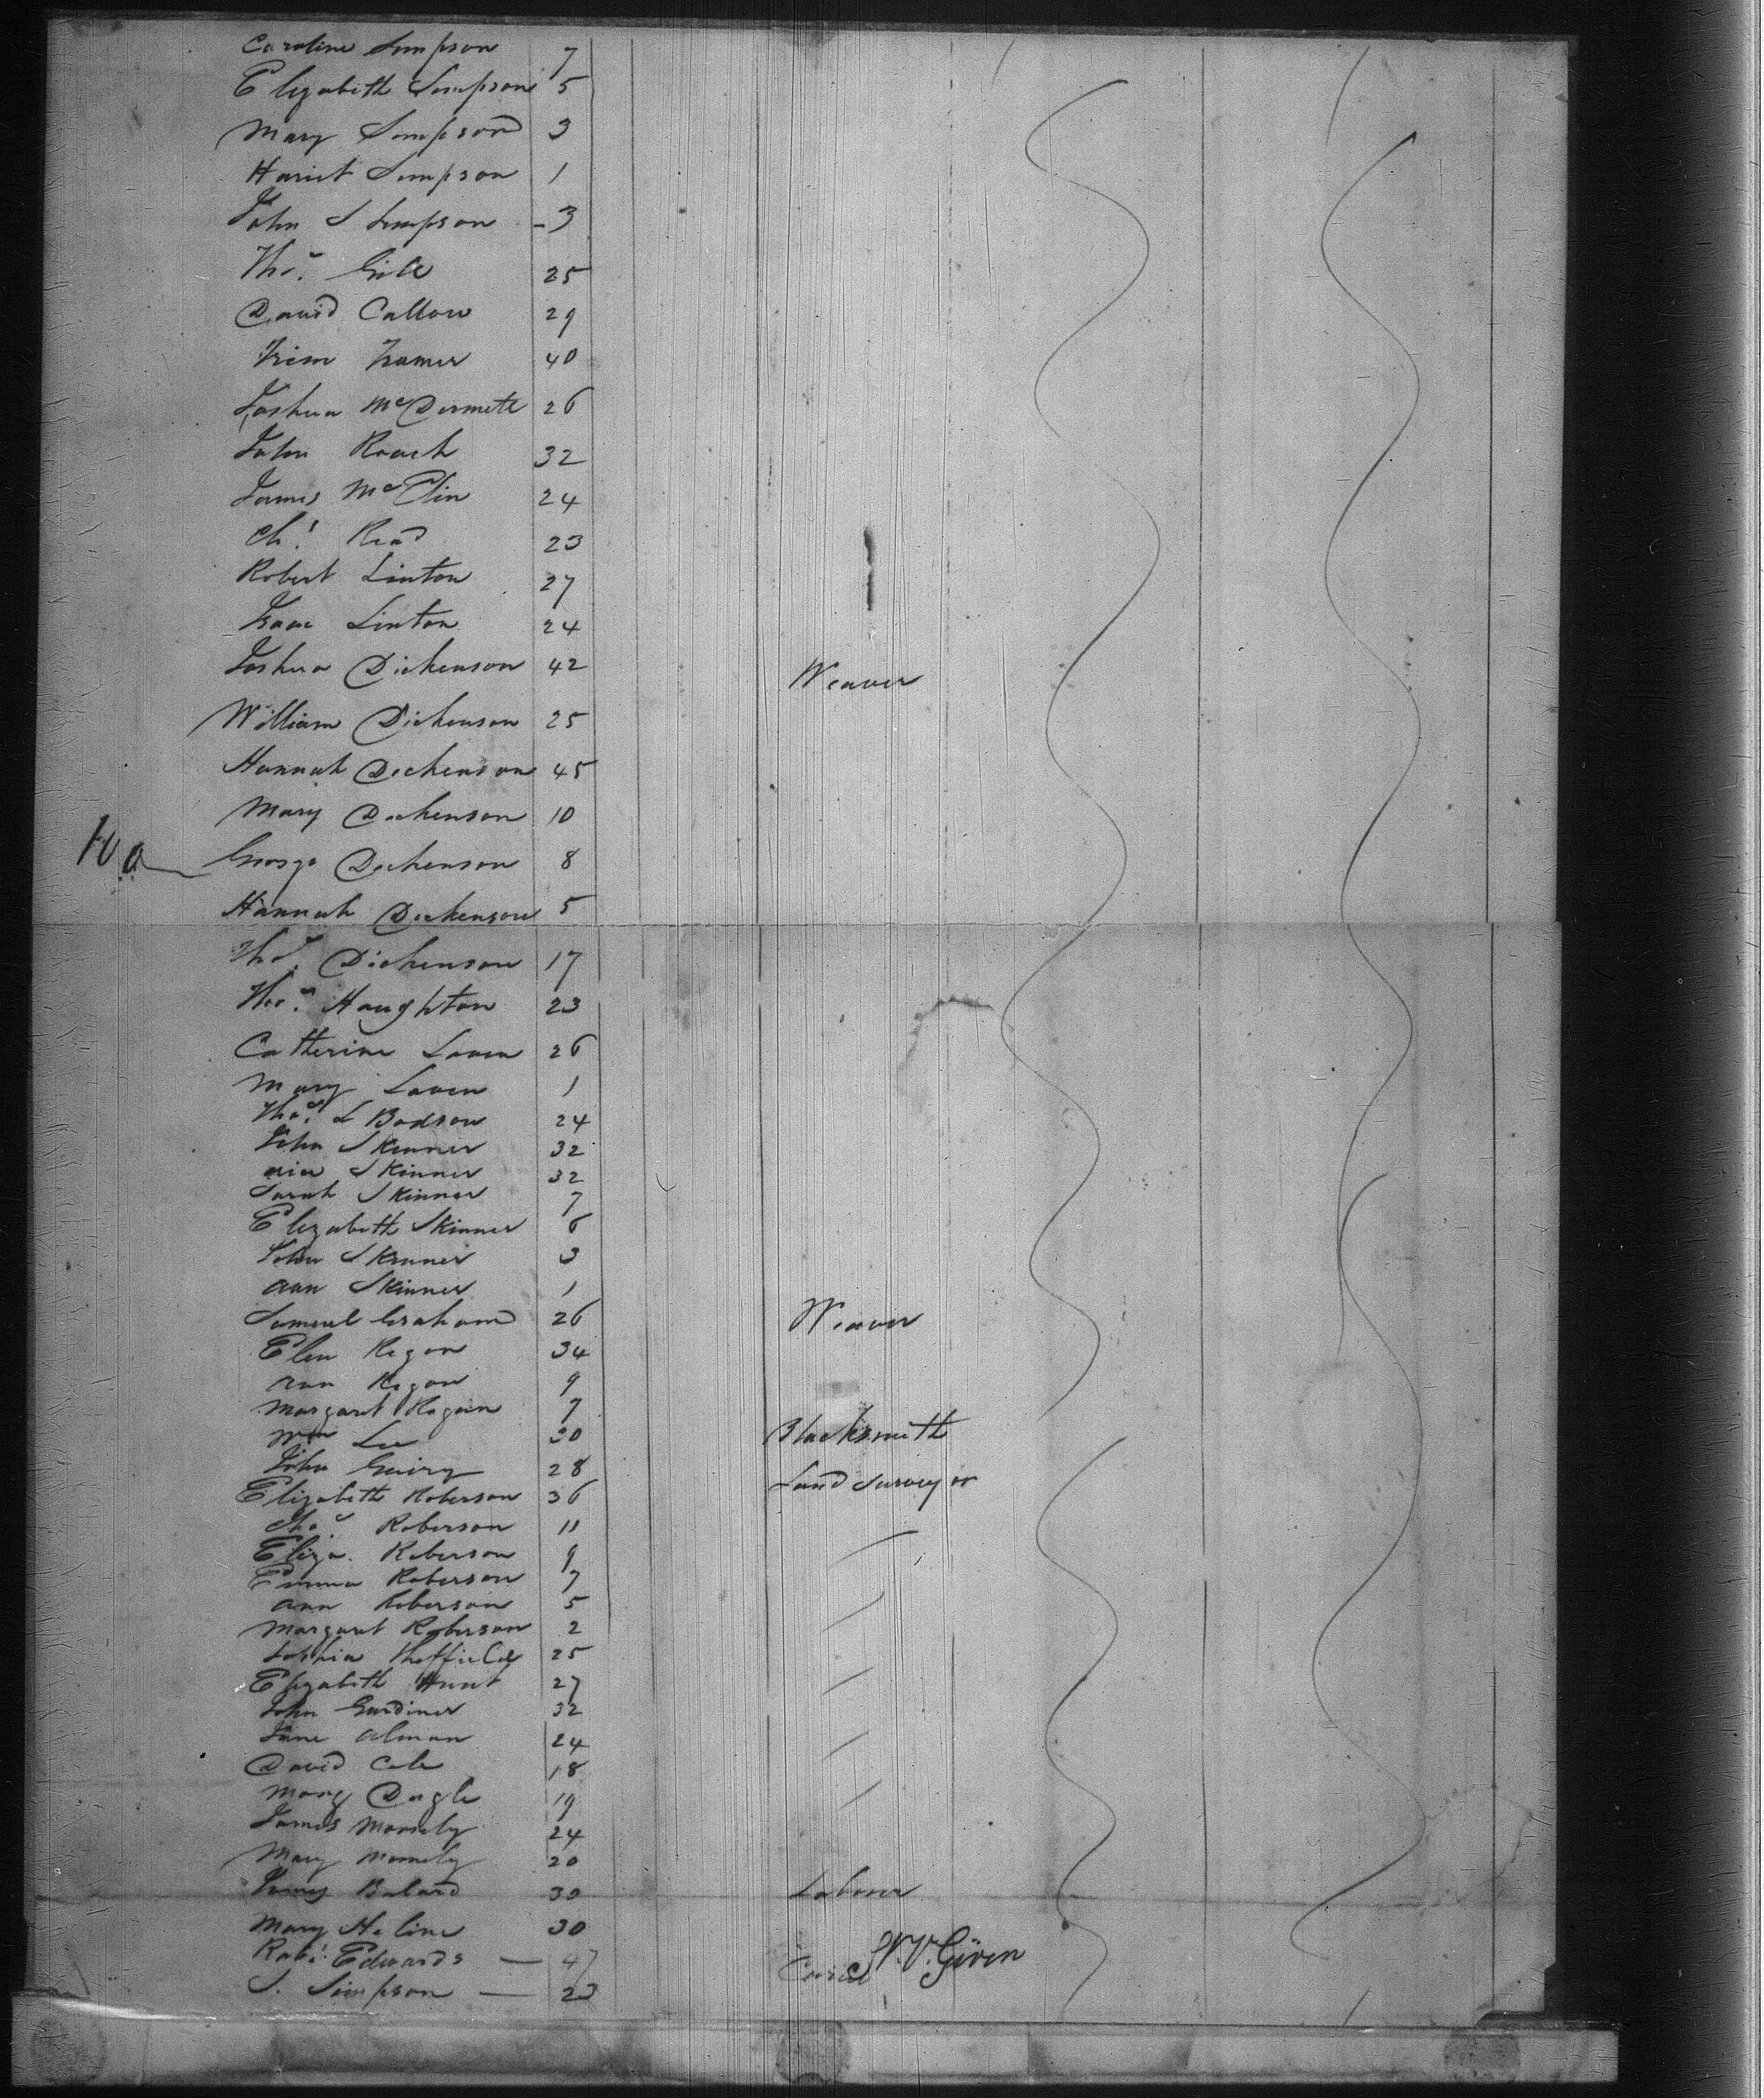 Caroline Simpson 7
Elizabeth Simpson 5
Mary Simpson 3
Hariet Simpson 1
John S Simpson - 3
Thos. Gill 25
David Callow 29
40
Joshua McDermett 26
John Roach 32
James McElin 24
Read 23
Robert Linton 27
Isaac Linton 24
Joshua Dickenson 42 Weaver
William Dickenson 25
Hannah Dickenson 45
Mary Dickenson 10
George Dickenson 8
Hannah Dickenson 5
Thos. Dickenson 17
Thos. Haughton 23
Catherine Laven 26
Mary Laven 1
Thos. L Bodson 24
John Skinner 32
Skinner 32
Sarah Skinner 7
Elizabeth Skinner 6
John Skinner 3
Ann Skinner 1
Samuel Graham 26 Weaver
Elen Regan 34
Ann Regan 9
Margaret Ragan 7
Wm Lee 30 Blacksmith
John 28 Land Surveyor
Elizabeth Roberson 36
Roberson 11
Eliza. Roberson 9
Emma Roberson 7
Ann Roberson 5
Margaret Roberson 2
Sophia Sheffield 25
Elizabeth Hunt 27
John Gardiner 32
Jane Alman 24
David Cole 18
Mary Dagle 19
James 24
Mary 20
Balard 30 Labour
Mary 30
Robt. Edwards — 47
W. V. Given
S. Simpson — 23